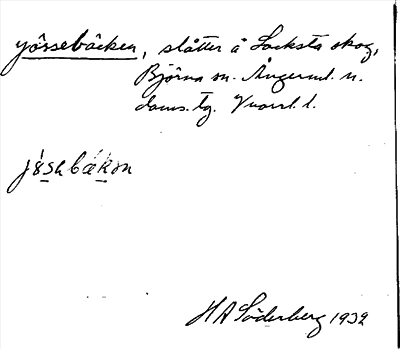 yössebäcken, slåtter å Locksta skog,
Björna sn. Ångerml. n.
doms. tg. Vnorrl. l.
jösebäkən
H A Söderberg 1932